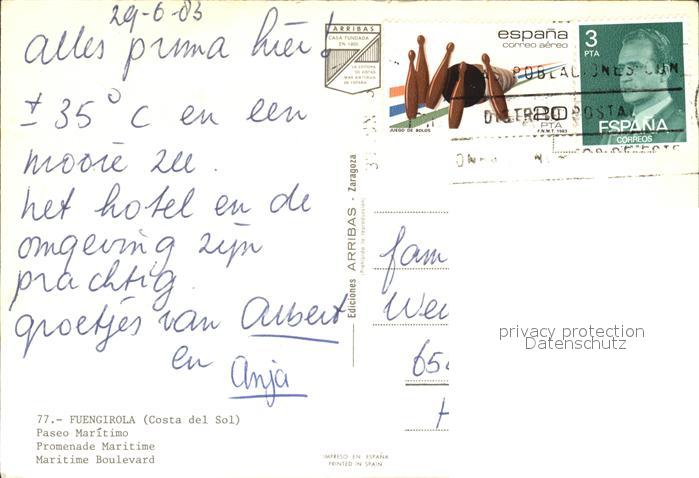 29-6-83
alles prima hier!
± 35° C en een
mooie zee.
het hotel en de
omgeving zijn
prachtig.
groetjes van Albert
en
Anja
77.- FUENGIROLA (Costa del Sol)
Paseo Marítimo
Promenade Maritime
Maritime Boulevard
ARRIBAS
CASA FUNDADA
EN 1905
LA EDITORA
DE VISTAS
MAS ANTIGUA
DE ESPAÑA
Ediciones ARRIBAS - Zaragoza
Prohibida la reproducción
IMPRESO EN ESPAÑA
PRINTED IN SPAIN
españa
correo aéreo
20
PTA
JUEGO DE BOLOS
F.N.M.T. 1983
3
PTA
ESPAÑA
CORREOS
POBLACIONES CON
DISTRITO POSTA
fam
We
65
privacy protection
Datenschutz